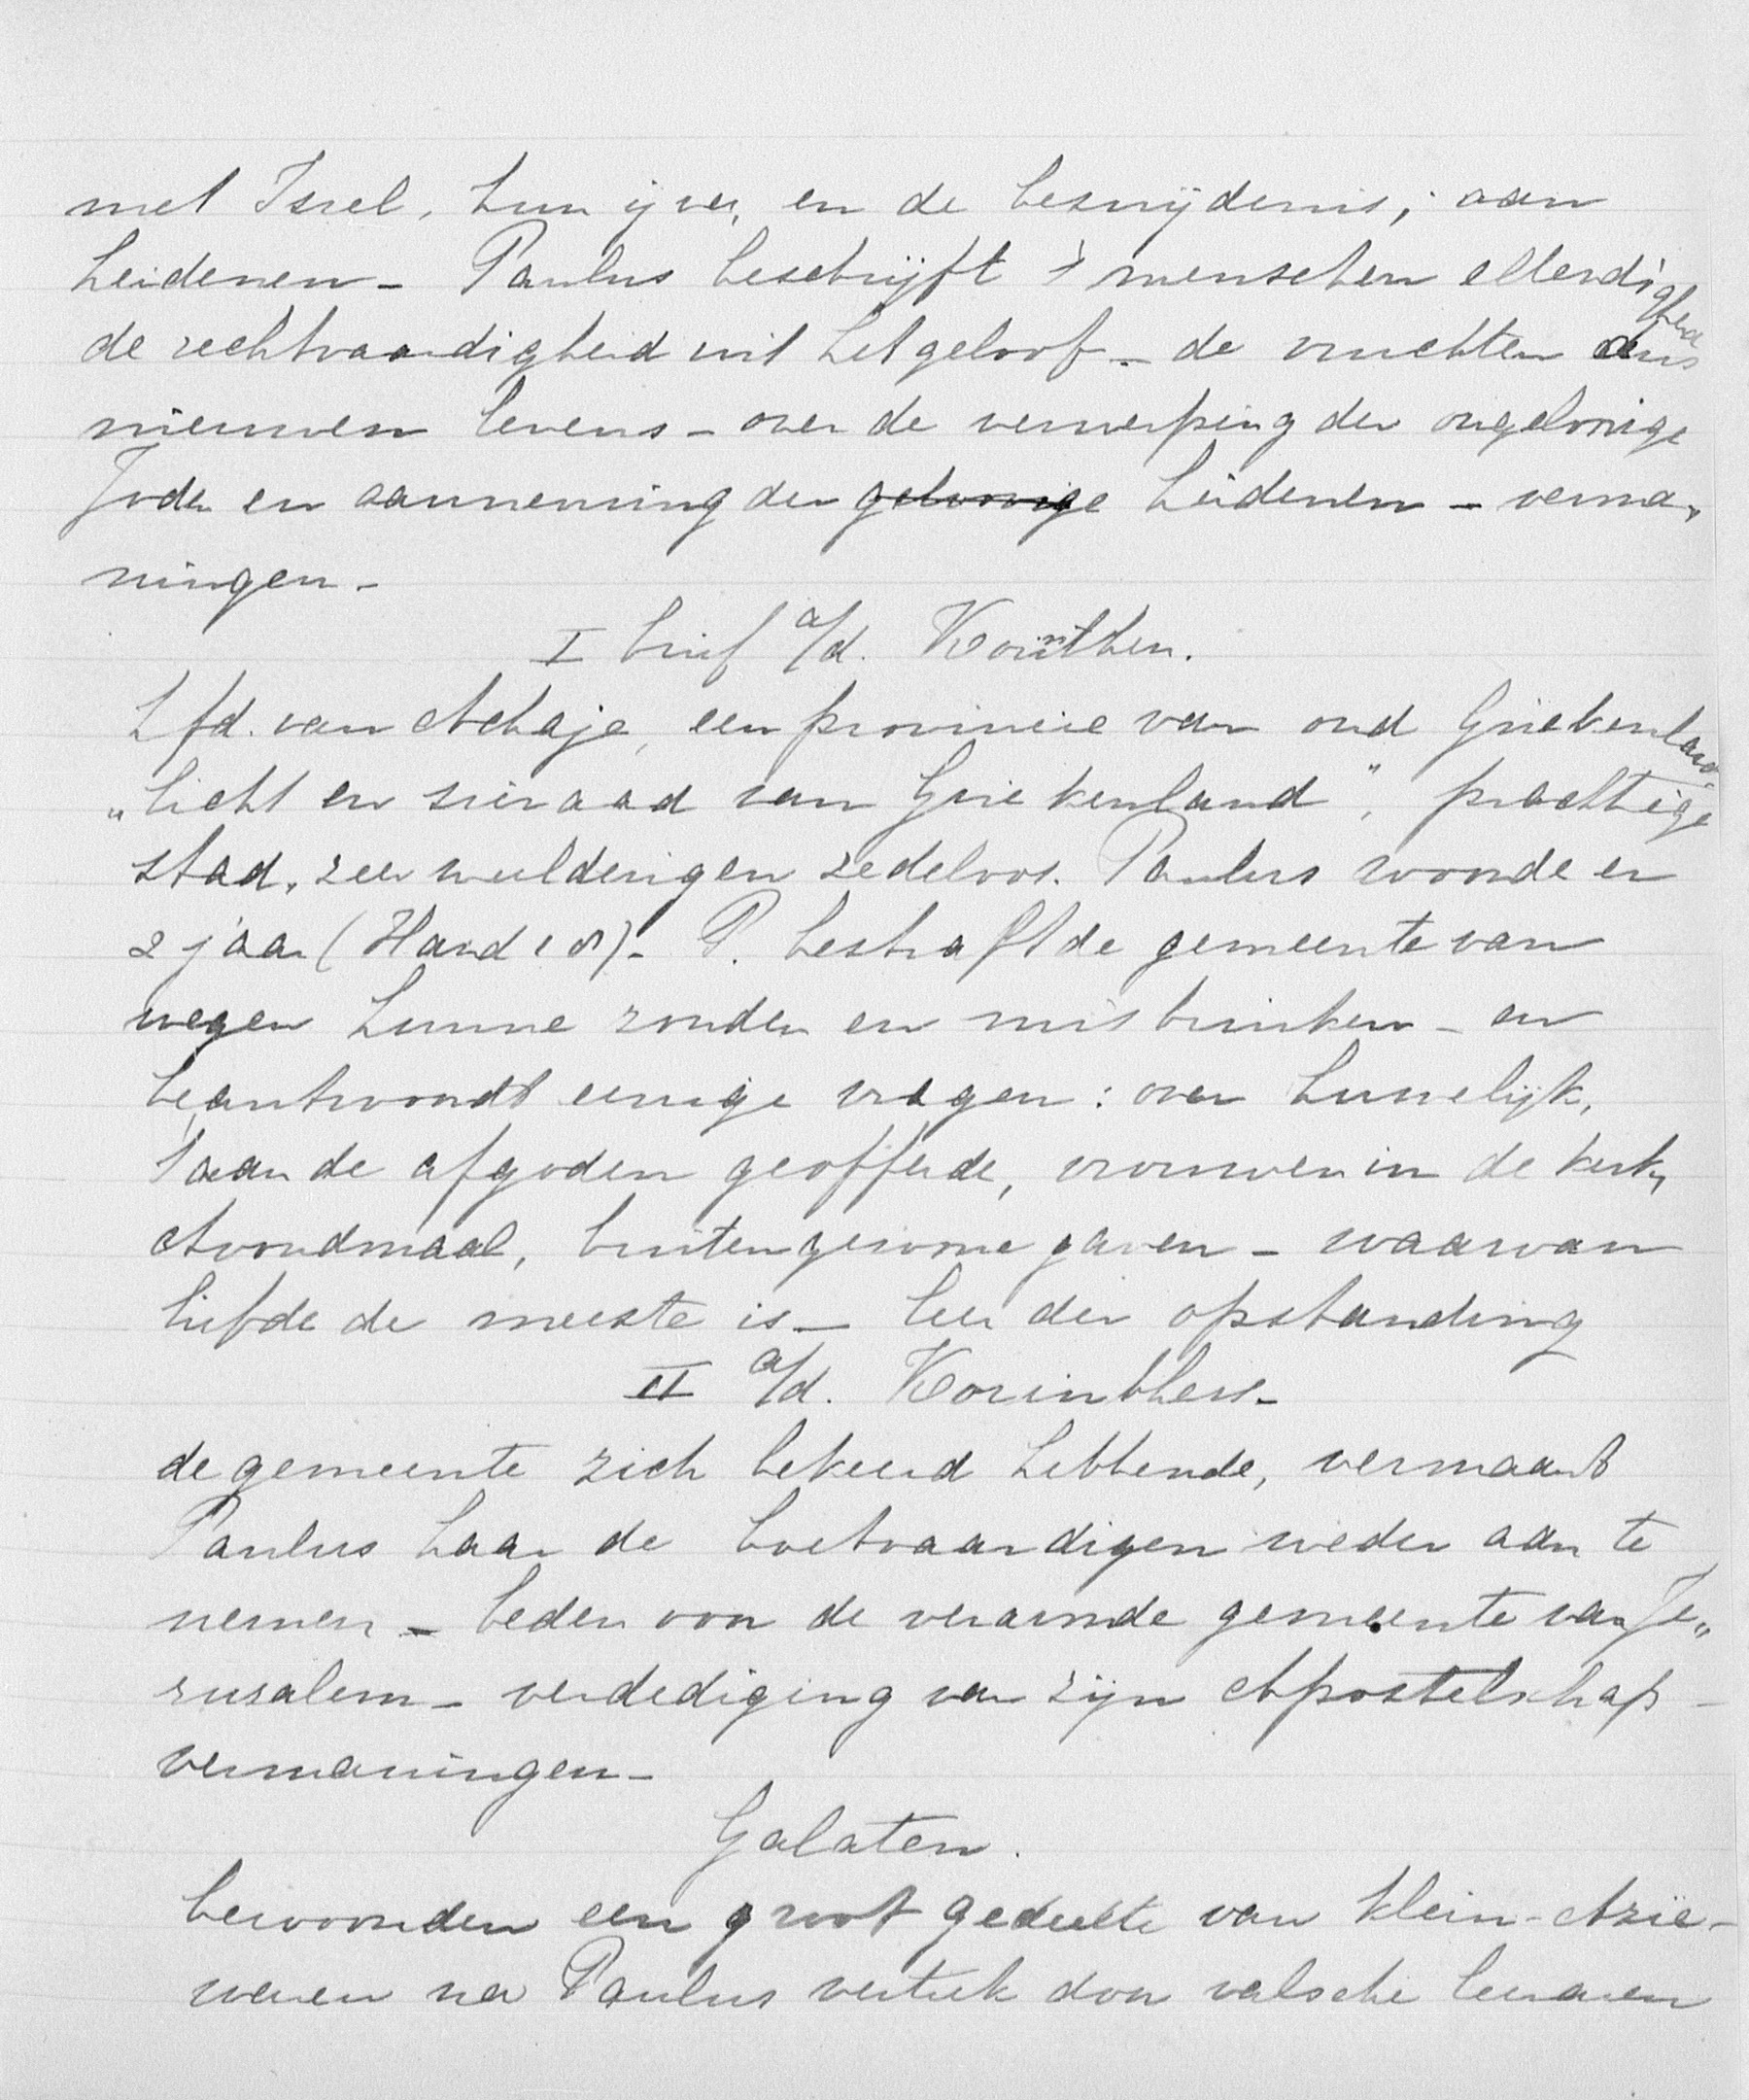 met Isrel, hun ijver, en de besnijdenis; aan
heidenen - Paulus beschrijft 's menschen ellendigheid
de rechtvaardigheid uit het geloof - de vruchten des
nieuwen levens - over de verwerping der ongelovige
Joden en aanneming der gelovige heidenen - verma„
ningen -
I brief a/d. Korinthen.
Hfd. van Achaje, een provincie van oud Griekenland
„licht en sieraad van Griekenland", prachtige
stad, zeer weelderig en zedeloos. Paulus woonde er
2 jaar (Hand 18) - P. bestraft de gemeente van
wegen hunne zonden en misbruiken - en
beantwoordt eenige vragen: over huwelijk,
't aan de afgoden geofferde, vrouwen in de kerk,
Avondmaal, buitengewone gaven - waarvan
liefde de meeste is - leer der opstanding
II a/d. Korinthers -
de gemeente zich bekeerd hebbende, vermaant
Paulus haar de boetvaardigen weder aan te
nemen - beden voor de verarmde gemeente van Je„
ruzalem - verdediging van zijn Apostelschap -
vermaningen -
Galaten.
bewoonden een groot gedeelte van Klein-Azië -
waren na Paulus vertrek door valsche leeraren